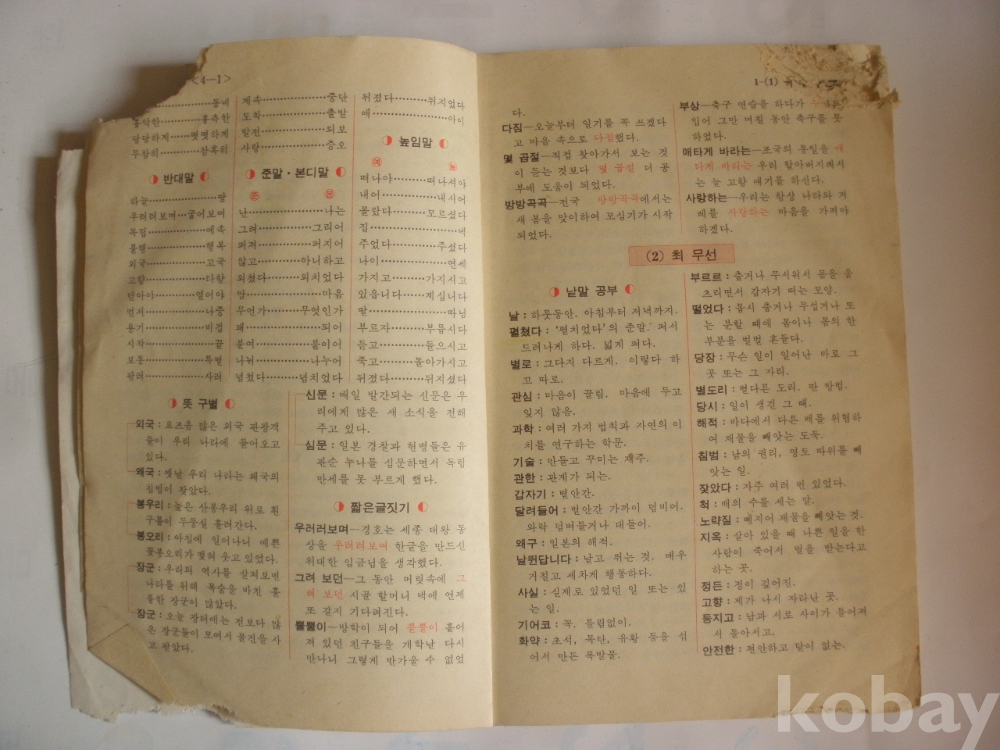 <4—1>
동네
흉악한………흉측한
당당하게……떳떳하게
반대말
하늘………땅
우러러보며……굽어보며
독립………예속
불행………행복
외국………고국
고향………타향
먼저………나중
용기………비겁
시작………끝
보통………특별
계속………중단
도착………출발
발전………퇴보
사랑………증오
준말·본디말
준 본
난………나는
그려………그리어
퍼져………퍼지어
않고………아니하고
외쳤다………외치었다
맘………마음
무언가………무엇인가
돼………되어
붙여………붙이어
나눠………나누어
넘쳤다………넘치었다
뒤졌다………뒤지었다
애………아이
높임말
예 높
떠나야………떠나셔야
내어………내시어
몰랐다………모르셨다
집………댁
주었다………주셨다
나이………연세
가지고………가지시고
있읍니다………계십니다
딸………따님
부르자………부릅시다
듣고………들으시고
죽고………돌아가시고
뒤졌다………뒤지셨다
뜻 구별
외국 : 요즈음 많은 외국 관광객
들이 우리 나라에 들어오고
있다.
왜국 : 옛날 우리 나라는 왜국의
침범이 잦았다.
봉우리 : 높은 산봉우리 위로 흰
구름이 두둥실 흘러간다.
봉오리 : 아침에 일어나니 예쁜
꽃봉오리가 맺혀 웃고 있었다.
장군 : 우리의 역사를 살펴보면
나라를 위해 목숨을 바친 훌
륭한 장군이 많았다.
장군 : 오늘 장터에는 전보다 많
은 장군들이 모여서 물건을 사
고 팔았다.
신문 : 매일 발간되는 신문은 우
리에게 많은 새 소식을 전해
주고 있다.
심문 : 일본 경찰과 헌병들은 유
관순 누나를 심문하면서 독립
만세를 못 부르게 했다.
짧은글짓기
우러러보며—경호는 세종 대왕 동
상을 우러러보며 한글을 만드신
위대한 임금님을 생각했다.
그려 보던—그 동안 머릿속에 그
려 보던 시골 할머니 댁에 언제
또 갈지 기다려진다.
뿔뿔이—방학이 되어 뿔뿔이 흩어
져 있던 친구들을 개학날 다시
만나니 그렇게 반가울 수 없었
1-(1)
다.
다짐—오늘부터 일기를 꼭 쓰겠다
고 마음 속으로 다짐했다.
몇 곱절—직접 찾아가서 보는 것
이 듣는 것보다 몇 곱절 더 공
부에 도움이 되었다.
방방곡곡—전국 방방곡곡에서는
새 봄을 맞이하여 모심기가 시작
되었다.
부상—축구 연습을 하다가
입어 그만 며칠 동안 축구를 못
하였다.
애타게 바라는—조국의 통일을 애
타게 바라는 우리 할아버지께서
는 늘 고향 얘기를 하신다.
사랑하는—우리는 항상 나라와 겨
레를 사랑하는 마음을 가져야
하겠다.
(2) 최 무선
낱말 공부
날 : 하룻동안. 아침부터 저녁까지.
펼쳤다 : '펼치었다'의 준말. 펴서
드러나게 하다. 넓게 펴다.
별로 : 그다지 다르게. 이렇다 하
고 따로.
관심 : 마음이 끌림. 마음에 두고
잊지 않음.
과학 : 여러 가지 법칙과 자연의 이
치를 연구하는 학문.
기술 : 만들고 꾸미는 재주.
관한 : 관계가 되는.
갑자기 : 별안간.
달려들어 : 별안간 가까이 덤비어.
와락 덤벼들거나 대들어.
왜구 : 일본의 해적.
날뛴답니다 : 날고 뛰는 것. 매우
거칠고 세차게 행동하다.
사실 : 실제로 있었던 일 또는 있
는 일.
기어코 : 꼭. 틀림없이.
화약 : 초석, 목탄, 유황 등을 섞
어서 만든 폭발물.
부르르 : 춥거나 무서워서 몸을 움
츠리면서 갑자기 떠는 모양.
떨었다 : 몹시 춥거나 무섭거나 또
는 분할 때에 몸이나 몸의 한
부분을 벌벌 흔들다.
당장 : 무슨 일이 일어난 바로 그
곳 또는 그 자리.
별도리 : 별다른 도리. 딴 방법.
당시 : 일이 생긴 그 때.
해적 : 바다에서 다른 배를 위협하
여 재물을 빼앗는 도둑.
침범 : 남의 권리, 영토 따위를 빼
앗는 일.
잦았다 : 자주 여러 번 있었다.
척 : 배의 수를 세는 말.
노략질 : 떼지어 재물을 빼앗는 것.
지옥 : 살아 있을 때 나쁜 일을 한
사람이 죽어서 벌을 받는다고
하는 곳.
정든 : 정이 깊어진.
고향 : 제가 나서 자라난 곳.
등지고 : 남과 서로 사이가 틀어져
서 돌아서고.
안전한 : 편안하고 탈이 없는.
kobay